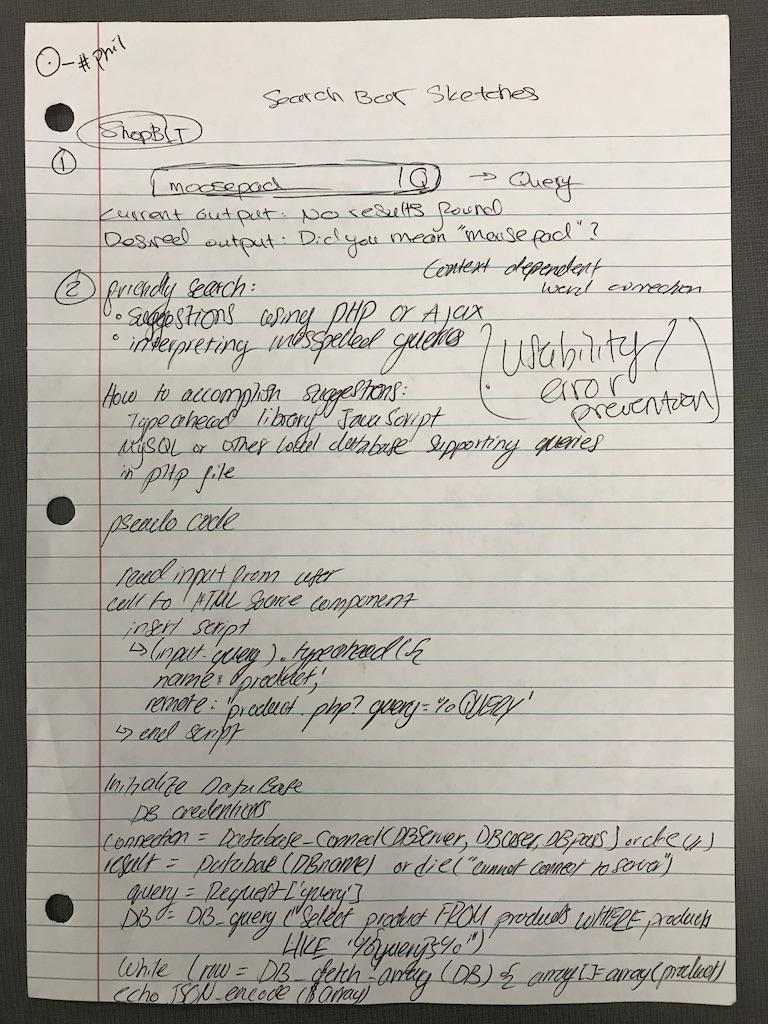 ⊙-#phil
Search Box Sketches
ShopBLT
① moosepad Q → Query
Current output: No results found
Desired output: Did you mean "mouse pad"?
Context dependent
word correction
② friendly search:
• Suggestions using PHP or Ajax
• interpreting misspelled queries
Usability/
error
prevention
How to accomplish suggestions:
Typeahead library JavaScript
MySQL or other local database supporting queries
in php file
pseudo code
read input from user
call to HTML source component
insert script
↳ (input.query).typeahead({
name: 'product',
remote: 'product.php?query=%QUERY'
↳ end script
Initialize DataBase
DB credentials
connection = Database_Connect(DBServer, DBUser, DBpass) or die(
result = Database(DBname) or die("cannot connect to server")
query = Request['query']
DB = DB_query("Select product FROM products WHERE products
LIKE '%{query}%'")
While (row = DB_fetch_array(DB) { array[]=array(product)
echo JSON_encode($array)